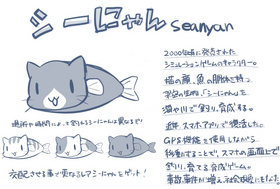 シーにゃん seanyan
2000年頃に発売された
シミュレーションゲームのキャラクター。
猫の頭、魚の胴体を持つ
架空の生物「シーにゃん」を
海や川で釣り、育成する。
近年、スマホアプリで復活した。
GPS機能を使用しながら
移動することで、スマホの画面上で
釣り、育てる育成ゲーム。
事故事件が増え
場所や時間によって釣れるシーにゃんは異なるぞ!
交配させる事で更なるレアシーにゃんをゲット!